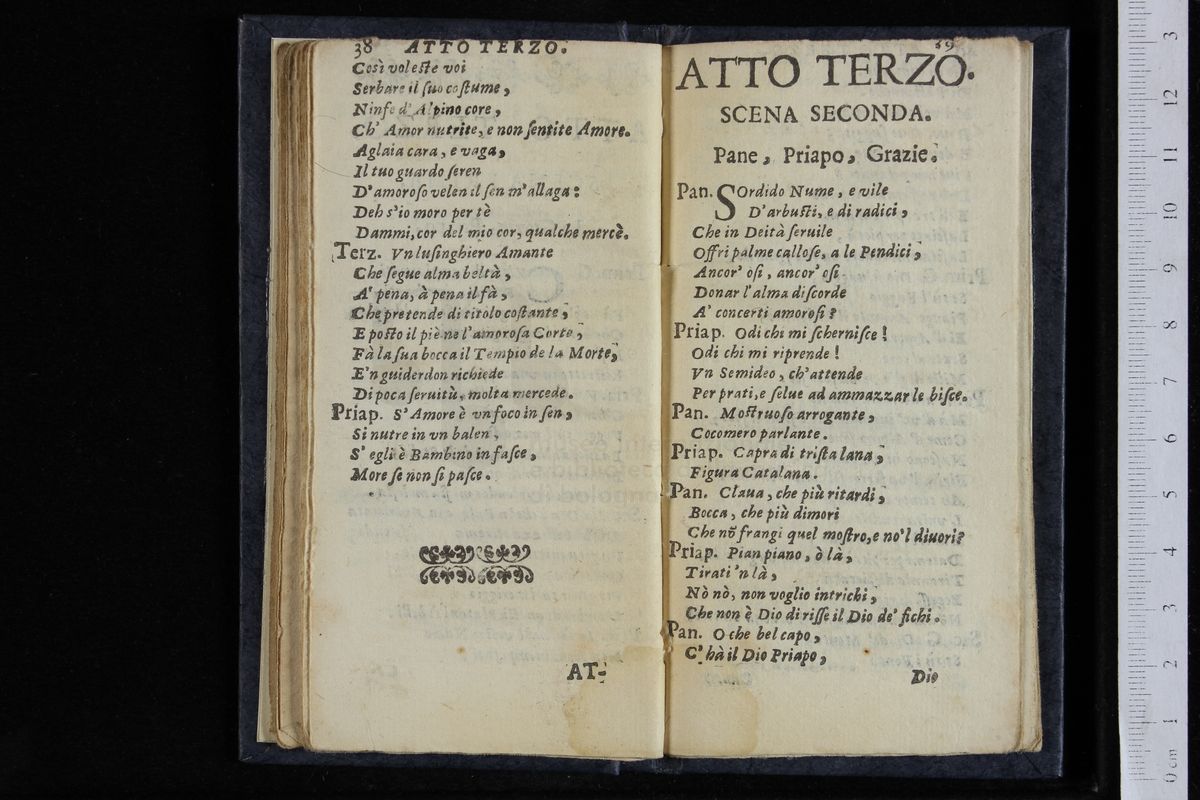 38 ATTO TERZO.
Così voleſte voi
Serbare il ſuo coſtume,
Ninfe d'Alpino core,
Ch' Amor nutrite, e non ſentite Amore.
Aglaia cara, e vaga,
Il tuo guardo ſeren
D'amoroſo velen il ſen m'allaga:
Deh s'io moro per tè
Dammi, cor del mio cor, qualche mercè.
Terz. Vn luſinghiero Amante
Che ſegue alma beltà,
A' pena, à pena il fà,
Che pretende di titolo coſtante,
E poſto il piè ne l'amoroſa Corte,
Fà la ſua bocca il Tempio de la Morte,
E'n guiderdon richiede
Di poca ſeruitù, molta mercede.
Priap. S'Amore è vn foco in ſen,
Si nutre in vn balen,
S' egli è Bambino in faſce,
More ſe non ſi paſce.
AT-
39
ATTO TERZO.
SCENA SECONDA.
Pane, Priapo, Grazie.
Pan. SOrdido Nume, e vile
D'arbuſti, e di radici,
Che in Deità ſeruile
Offri palme calloſe, a le Pendici,
Ancor' oſi, ancor' oſi
Donar l'alma diſcorde
A' concerti amoroſi?
Priap. Odi chi mi ſcherniſce!
Odi chi mi riprende!
Vn Semideo, ch'attende
Per prati, e ſelue ad ammazzar le biſce.
Pan. Moſtruoſo arrogante,
Cocomero parlante.
Priap. Capra di triſta lana,
Figura Catalana.
Pan. Claua, che più ritardi,
Bocca, che più dimori
Che nõ frangi quel moſtro, e no'l diuori?
Priap. Pian piano, ò là,
Tirati 'n là,
Nò nò, non voglio intrichi,
Che non è Dio di riſſe il Dio de' fichi.
Pan. O che bel capo,
C' hà il Dio Priapo,
Dio
0 cm 1 2 3 4 5 6 7 8 9 10 11 12 13